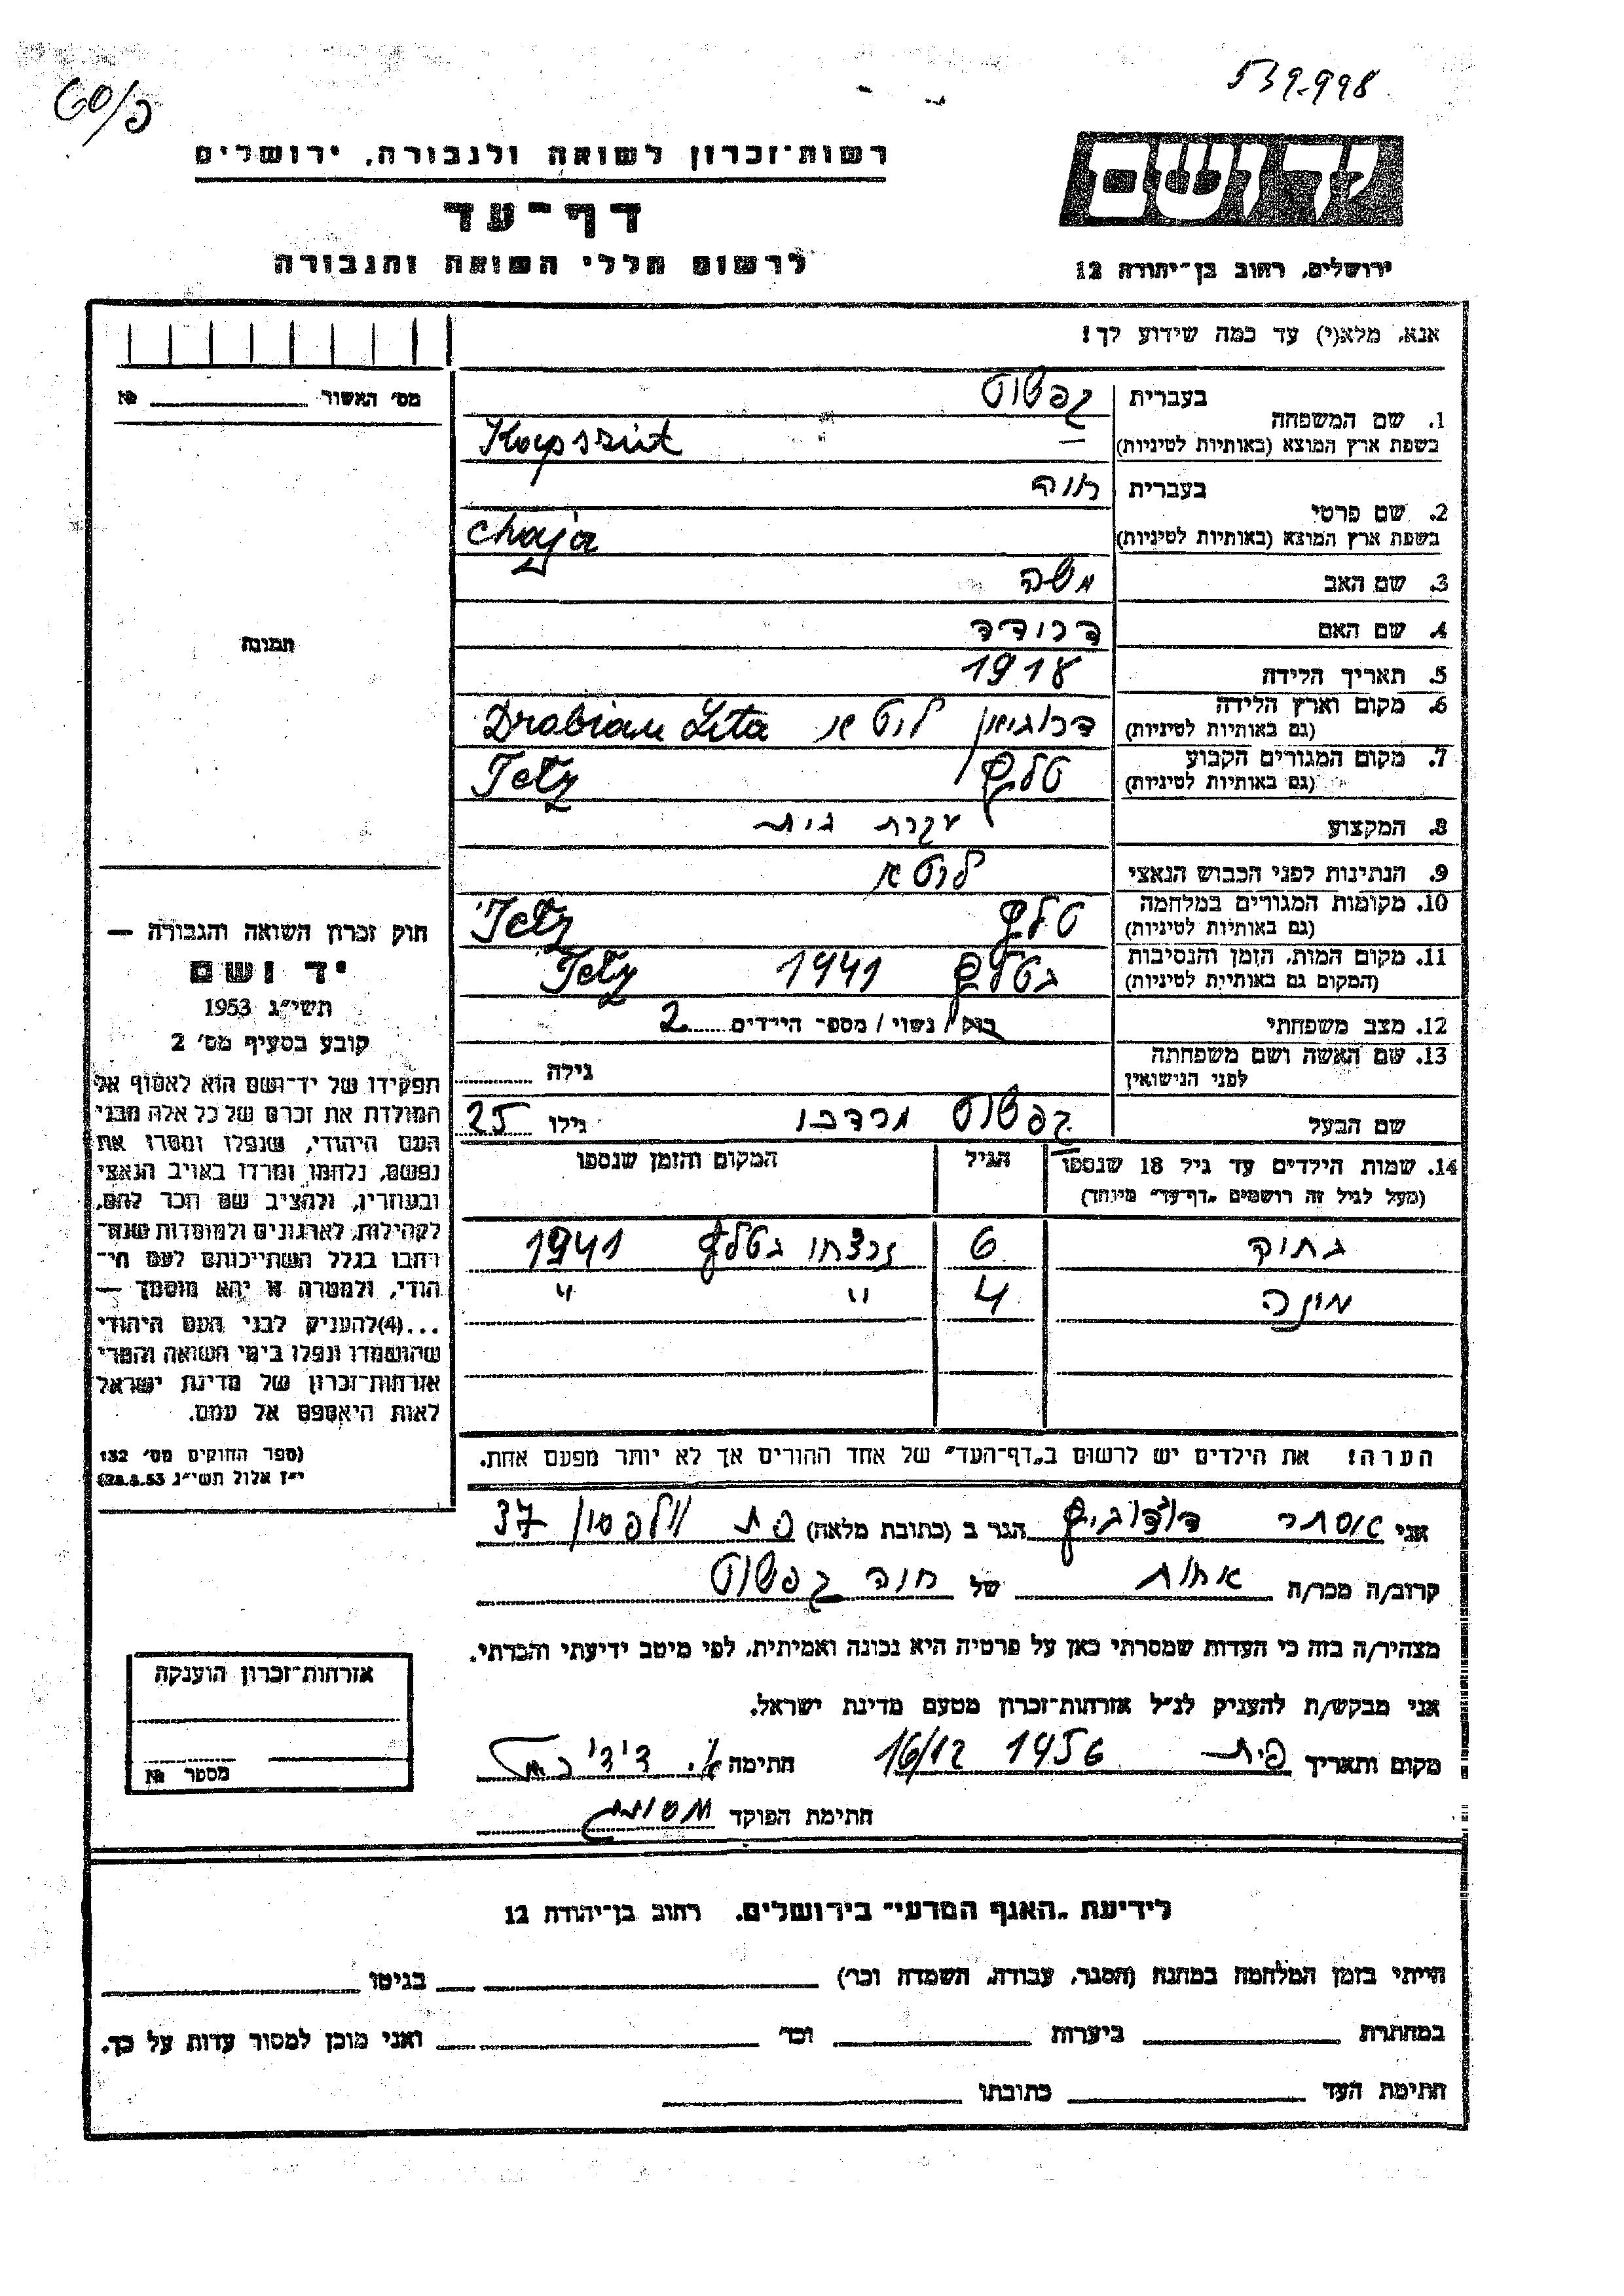 539998
60/כ
יד ושם
רשות־זכרון לשואה ולגבורה, ירושלים
דף־עד
לרשום חללי השואה והגבורה
ירושלים, רחוב בן־יהודה 12
אנא, מלא(י) עד כמה שידוע לך!
מס' האשור № 
תמונה
1. שם המשפחה
בעברית קפשוט
בשפת ארץ המוצא (באותיות לטיניות) Kapszut
2. שם פרטי
בעברית חיה
בשפת ארץ המוצא (באותיות לטיניות) Chaja
3. שם האב משה
4. שם האם
5. תאריך הלידה 1918
6. מקום וארץ הלידה
(גם באותיות לטיניות) ליטא Drabian Lita
7. מקום המגורים הקבוע
(גם באותיות לטיניות) טלץ Telz
8. המקצוע עקרת בית
9. הנתינות לפני הכבוש הנאצי ליטא
10. מקומות המגורים במלחמה
(גם באותיות לטיניות) טלץ Telz
11. מקום המות, הזמן והנסיבות
(המקום גם באותיות לטיניות) בטלץ 1941 Telz
12. מצב משפחתי רווק / נשוי / מספר הילדים 2
13. שם האשה ושם משפחתה
לפני הנישואין גילה
שם הבעל קפשוט מרדכי גילו 25
14. שמות הילדים עד גיל 18 שנספו הגיל המקום והזמן שנספו
(מעל לגיל זה רושמים "דף־עד" מיוחד)
6 נרצחו בטלץ 1941
4 " "
הערה! את הילדים יש לרשום ב"דף־העד" של אחד ההורים אך לא יותר מפעם אחת.
חוק זכרון השואה והגבורה —
יד ושם
תשי"ג 1953
קובע בסעיף מס' 2
תפקידו של יד־ושם הוא לאסוף אל
המולדת את זכרם של כל אלה מבני
העם היהודי, שנפלו ומסרו את
נפשם, נלחמו ומרדו באויב הנאצי
ובעוזריו, ולהציב שם וזכר להם,
לקהילות, לארגונים ולמוסדות שנח־
רבו בגלל השתייכותם לעם הי־
הודי, ולמטרה זו יהא מוסמך —
...(4) להעניק לבני העם היהודי
שהושמדו ונפלו בימי השואה והמרי
אזרחות־זכרון של מדינת ישראל
לאות היאספם אל עמם.
(ספר החוקים מס' 132
י"ז אלול תשי"ג 28.8.53)
אני אסתר הגר ב (כתובת מלאה) פ.ת וולפסון 37
קרוב/ה מכר/ה אחות של חיה קפשוט
מצהיר/ה בזה כי העדות שמסרתי כאן על פרטיה היא נכונה ואמיתית, לפי מיטב ידיעתי והכרתי.
אני מבקש/ת להעניק לנ"ל אזרחות־זכרון מטעם מדינת ישראל.
מקום ותאריך פ.ת 16/12 1956 חתימה
חתימת הפוקד
אזרחות־זכרון הוענקה
מספר №
לידיעת "האגף המדעי" בירושלים, רחוב בן־יהודה 12
הייתי בזמן המלחמה במחנה (הסגר, עבודה, השמדה וכו') בגיטו
במחתרת ביערות וכו' ואני מוכן למסור עדות על כך.
חתימת העד כתובתו